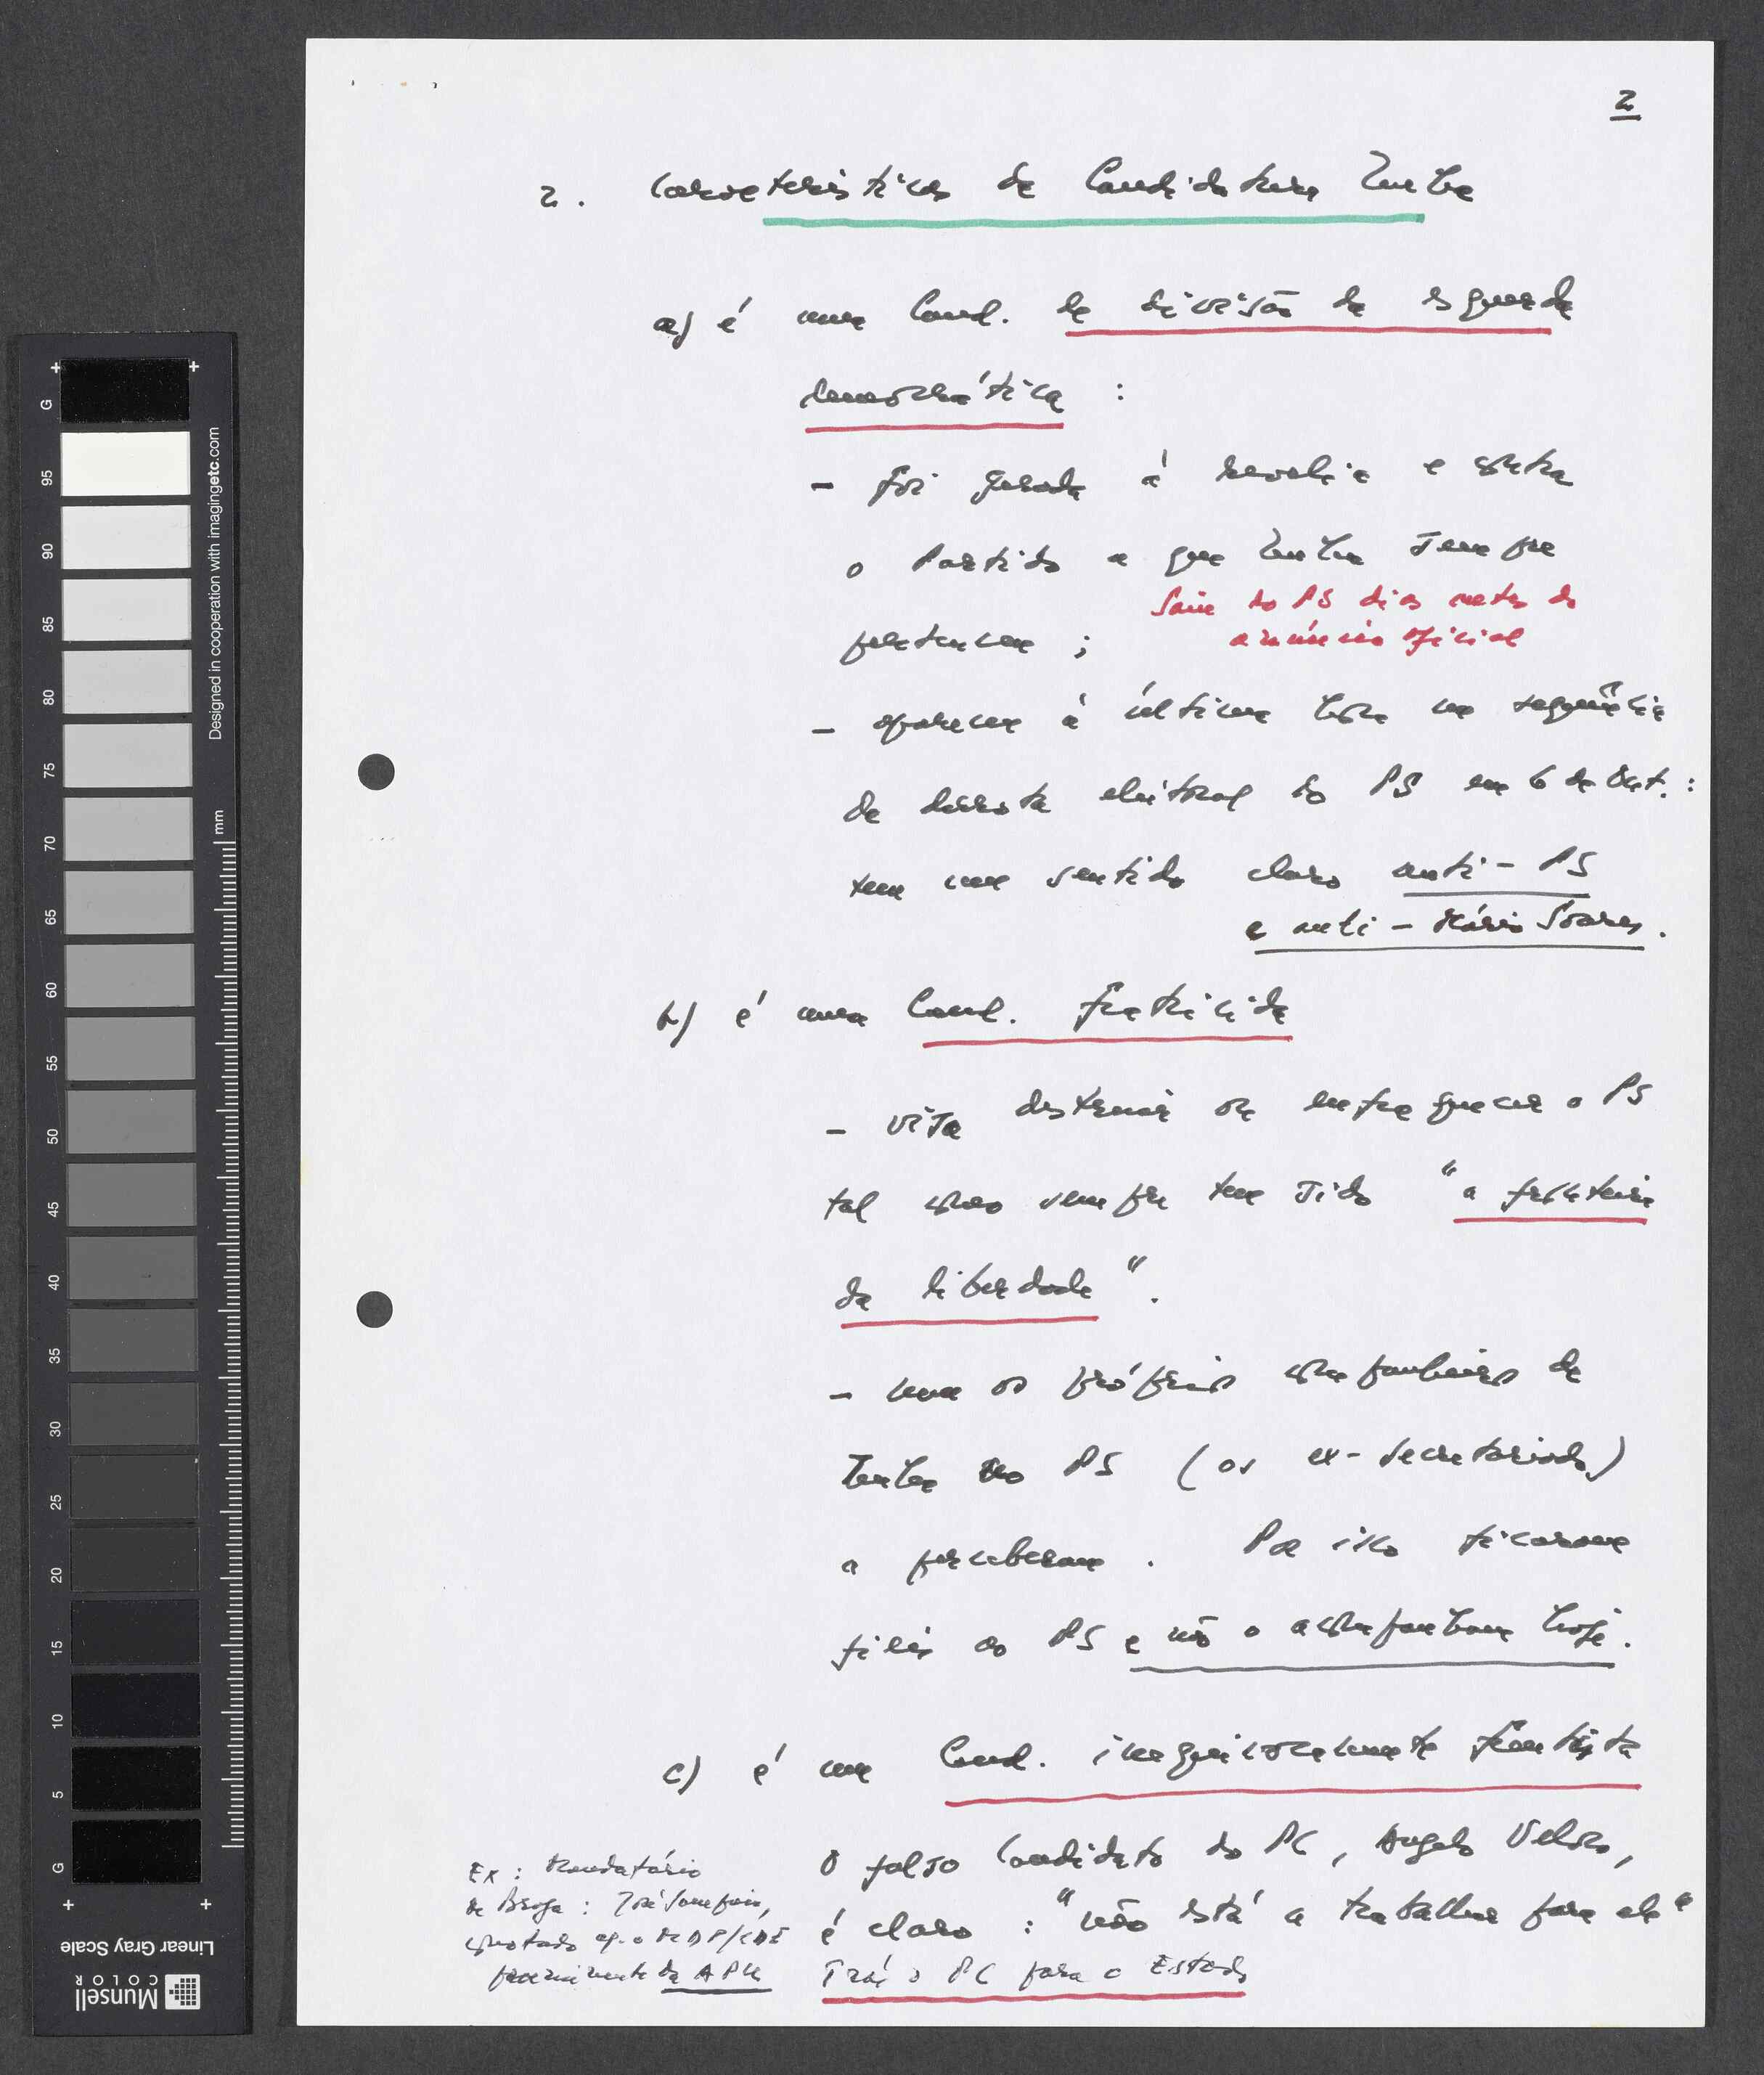 2
2. Caracteristicas da Candidatura Zenha
a) é uma Cand. de divisão da esquerda
democrática :
- foi gerada à revelia e contra
o Partido a que Zenha sempre
Saiu do PS dias antes do
anúncio oficial
pertenceu ;
- aparece à última hora na sequência
da derrota eleitoral do PS em 6 de Out. :
tem um sentido claro anti - PS
e anti - Mário Soares .
b) é uma Cand. fratricida
- visa destruir ou enfraquecer o PS
tal como sempre tem sido "a fronteira
da liberdade" .
- nem os próprios companheiros de
Zenha no PS (os ex-secretariado)
a perceberam . Por isso ficaram
fiéis ao PS e não o acompanham hoje .
c) é uma Cand. inequivocamente frentista
O falso Candidato do PC, Angelo Veloso,
é claro : "não está a trabalhar para ele"
Traz o PC para o Estado
Ex : Mandatário
de Braga : José Sampaio,
conotado c/ o MDP/CDE
proveniente da APU
G 95 90 85 80 75 70 65 60 55 50 45 40 35 30 25 20 15 10 5 G
Designed in cooperation with imagingetc.com
mm
Linear Gray Scale
Munsell
COLOR